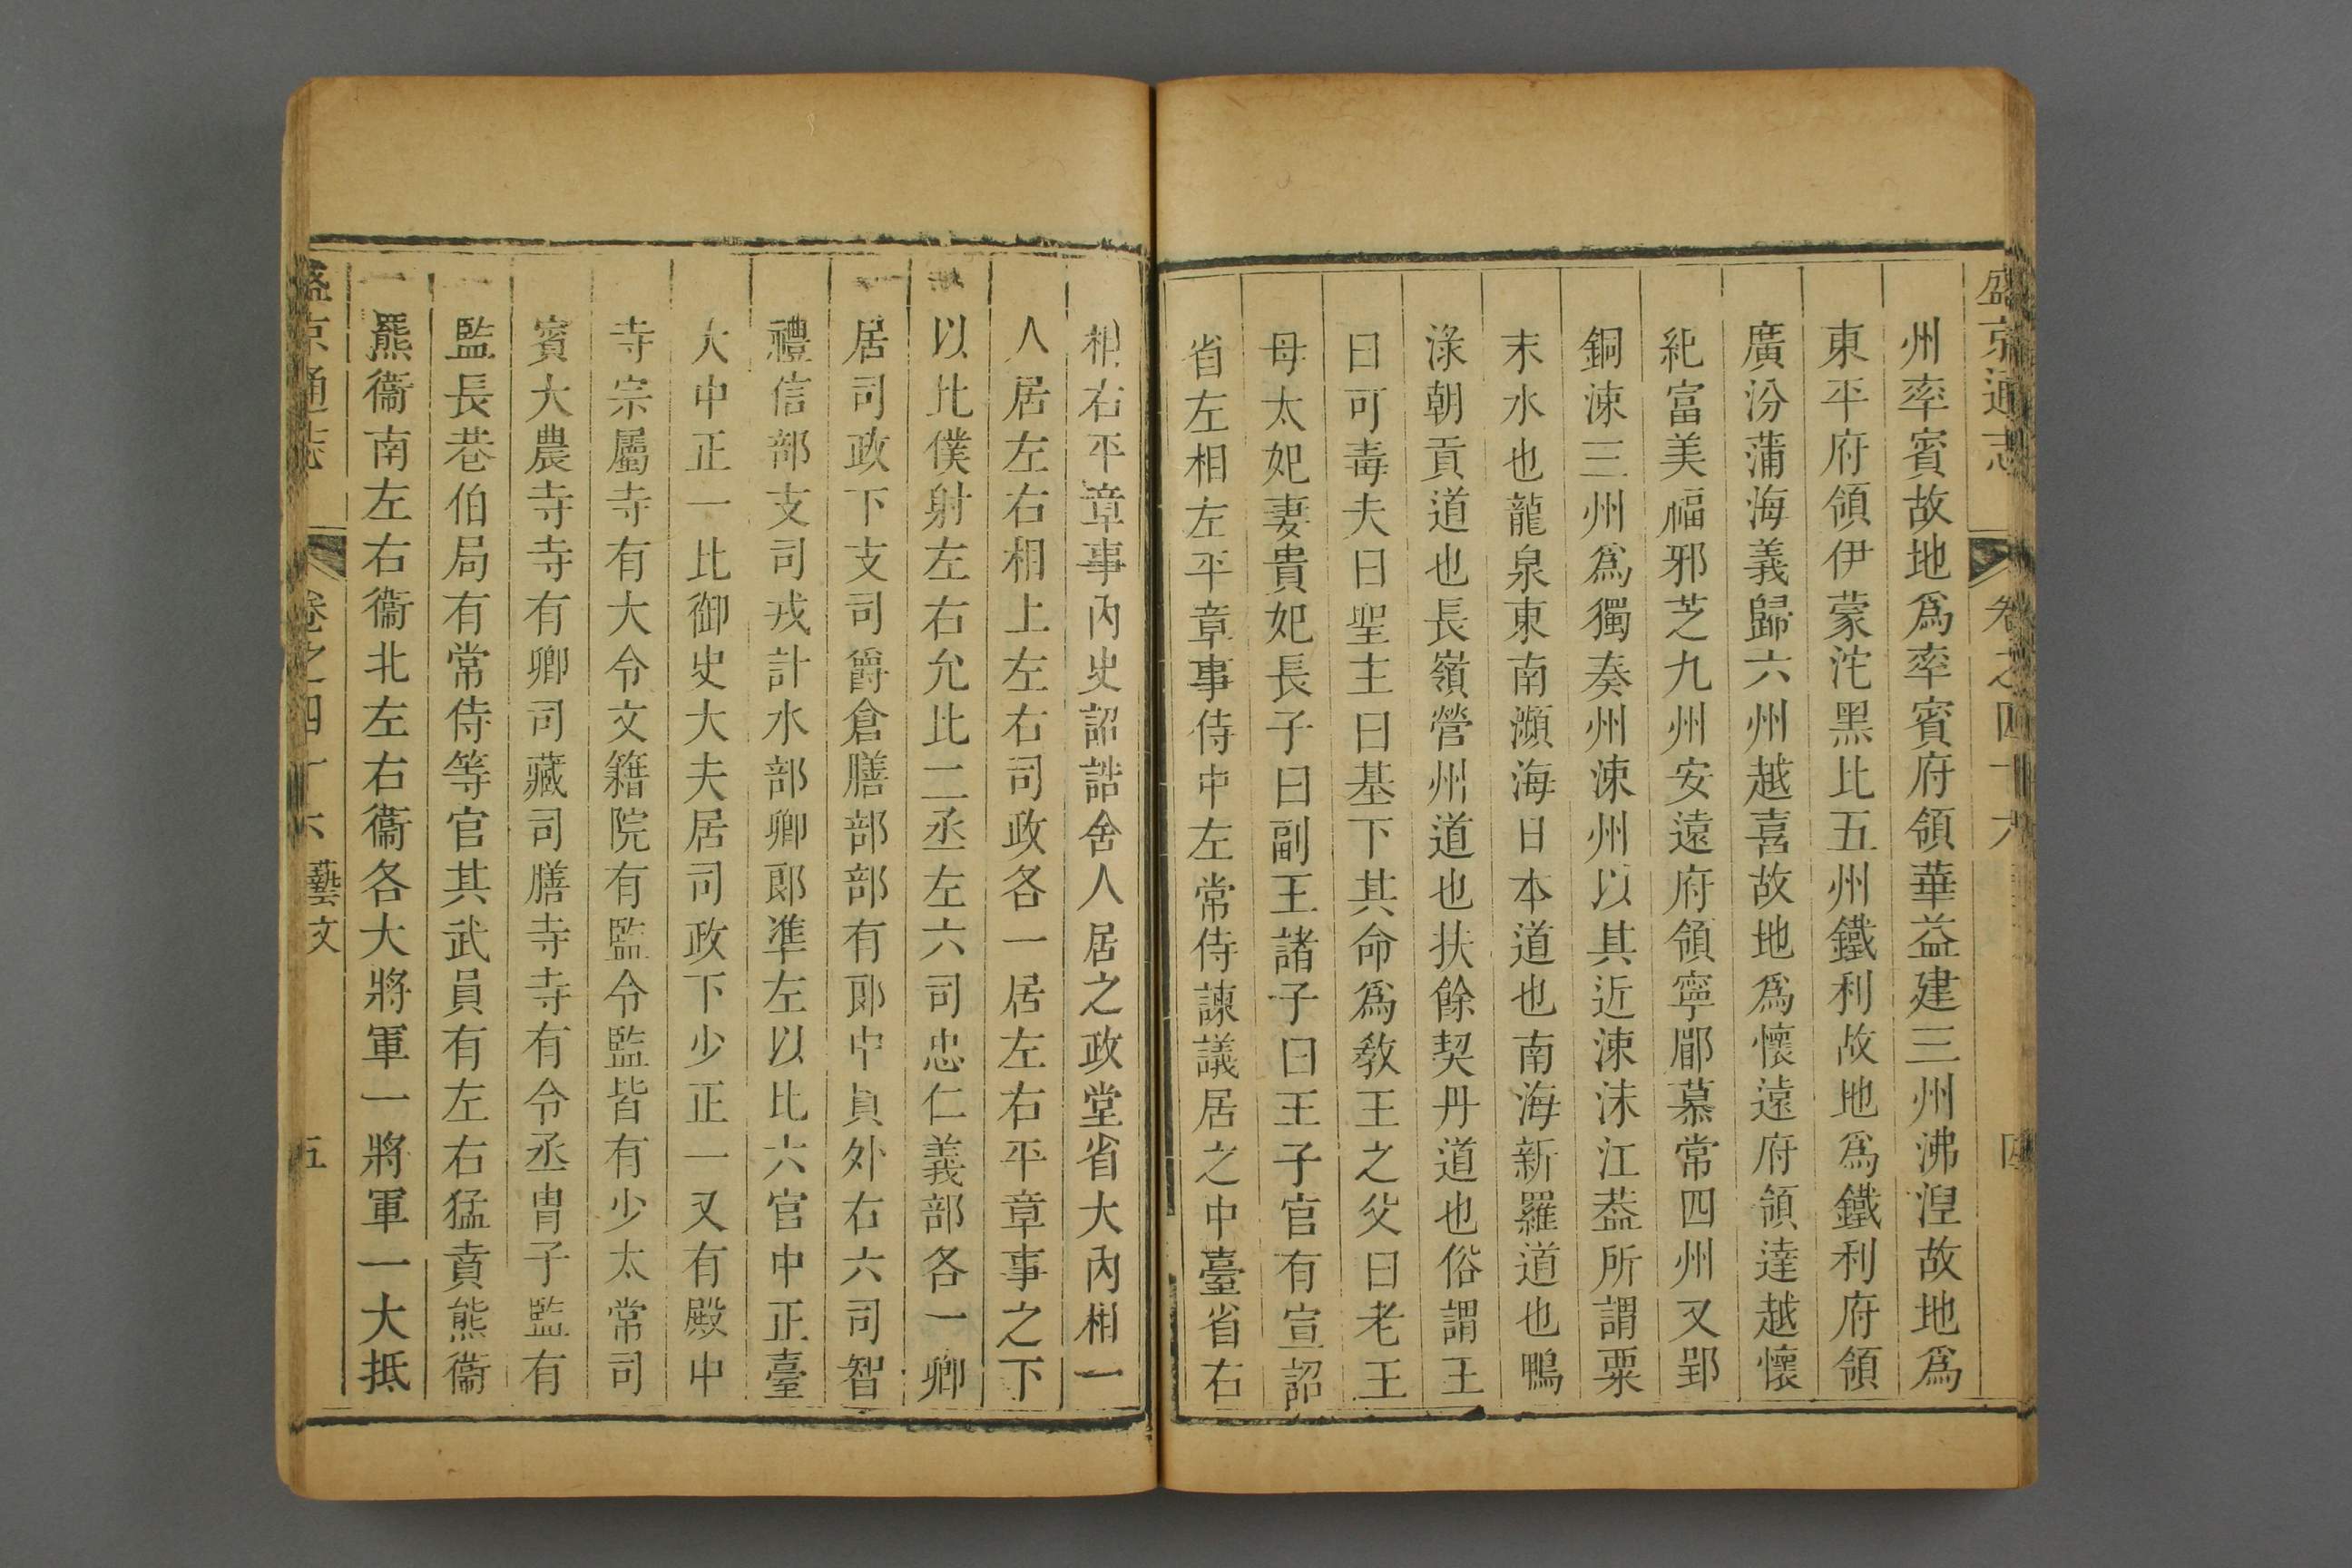 盛京通志 卷之四十六 四
州率賓故地爲率賓府領華益建三州沸湼故地爲
東平府領伊蒙沱黑比五州鐵利故地爲鐵利府領
廣汾蒲海義歸六州越喜故地爲懷遠府領達越懷
紀富美福邪芝九州安遠府領寧郿慕常四州又郢
銅涑三州爲獨奏州涑州以其近涑沫江葢所謂粟
末水也龍泉東南瀕海日本道也南海新羅道也鴨
淥朝貢道也長嶺營州道也扶餘契丹道也俗謂王
曰可毒夫曰聖主曰基下其命爲敎王之父曰老王
母太妃妻貴妃長子曰副王諸子曰王子官有宣詔
省左相左平章事侍中左常侍諫議居之中臺省右
相右平章事內史詔誥舍人居之政堂省大內相一
人居左右相上左右司政各一居左右平章事之下
以比僕射左右允比二丞左六司忠仁義部各一卿
居司政下支司爵倉膳部部有郞中員外右六司智
禮信部支司戎計水部卿郞準左以比六官中正臺
大中正一比御史大夫居司政下少正一又有殿中
寺宗屬寺有大令文籍院有監令監皆有少太常司
賓大農寺寺有卿司藏司膳寺寺有令丞胄子監有
監長巷伯局有常侍等官其武員有左右猛賁熊衞
羆衞南左右衞北左右衞各大將軍一將軍一大抵
盛京通志 卷之四十六 藝文 五